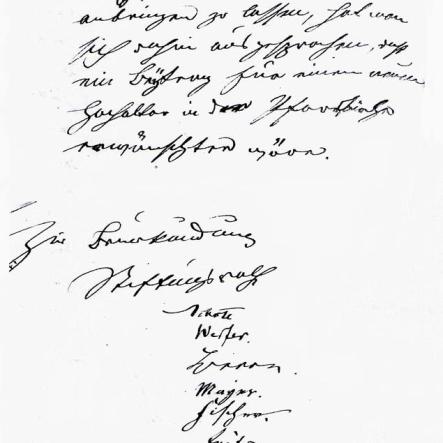 anbringen zu lassen, hat man
sich dahin ausgesprochen, daß
ein Beitrag für einen neuen
Hochaltar in der Pfarrkirche
erwünschter wäre.
Zur Beurkundung
Stiftungsrath
Schott
Werfer.
Mayer.
Fischer.